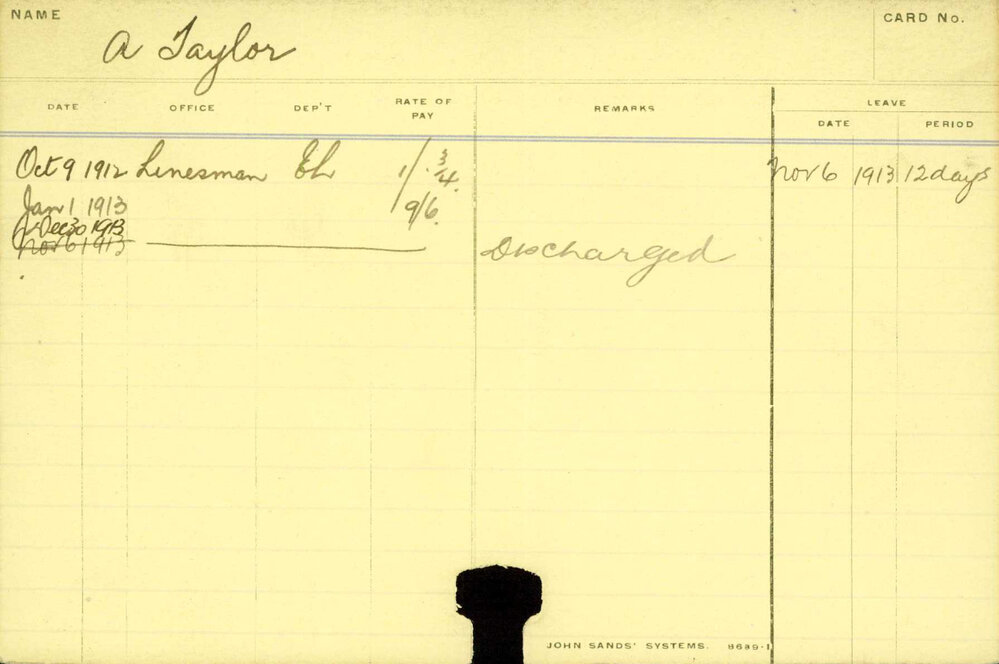 NAME
CARD No.
A Taylor
DATE OFFICE DEP'T RATE OF PAY REMARKS LEAVE
DATE PERIOD
Oct 9 1912 Linesman EL 1/. 3/4. Nov 6 1913 12 days
Jan 1 1913 9/6.
Dec 30 1913
Nov 6 1913 Discharged
JOHN SANDS' SYSTEMS. 8689-1